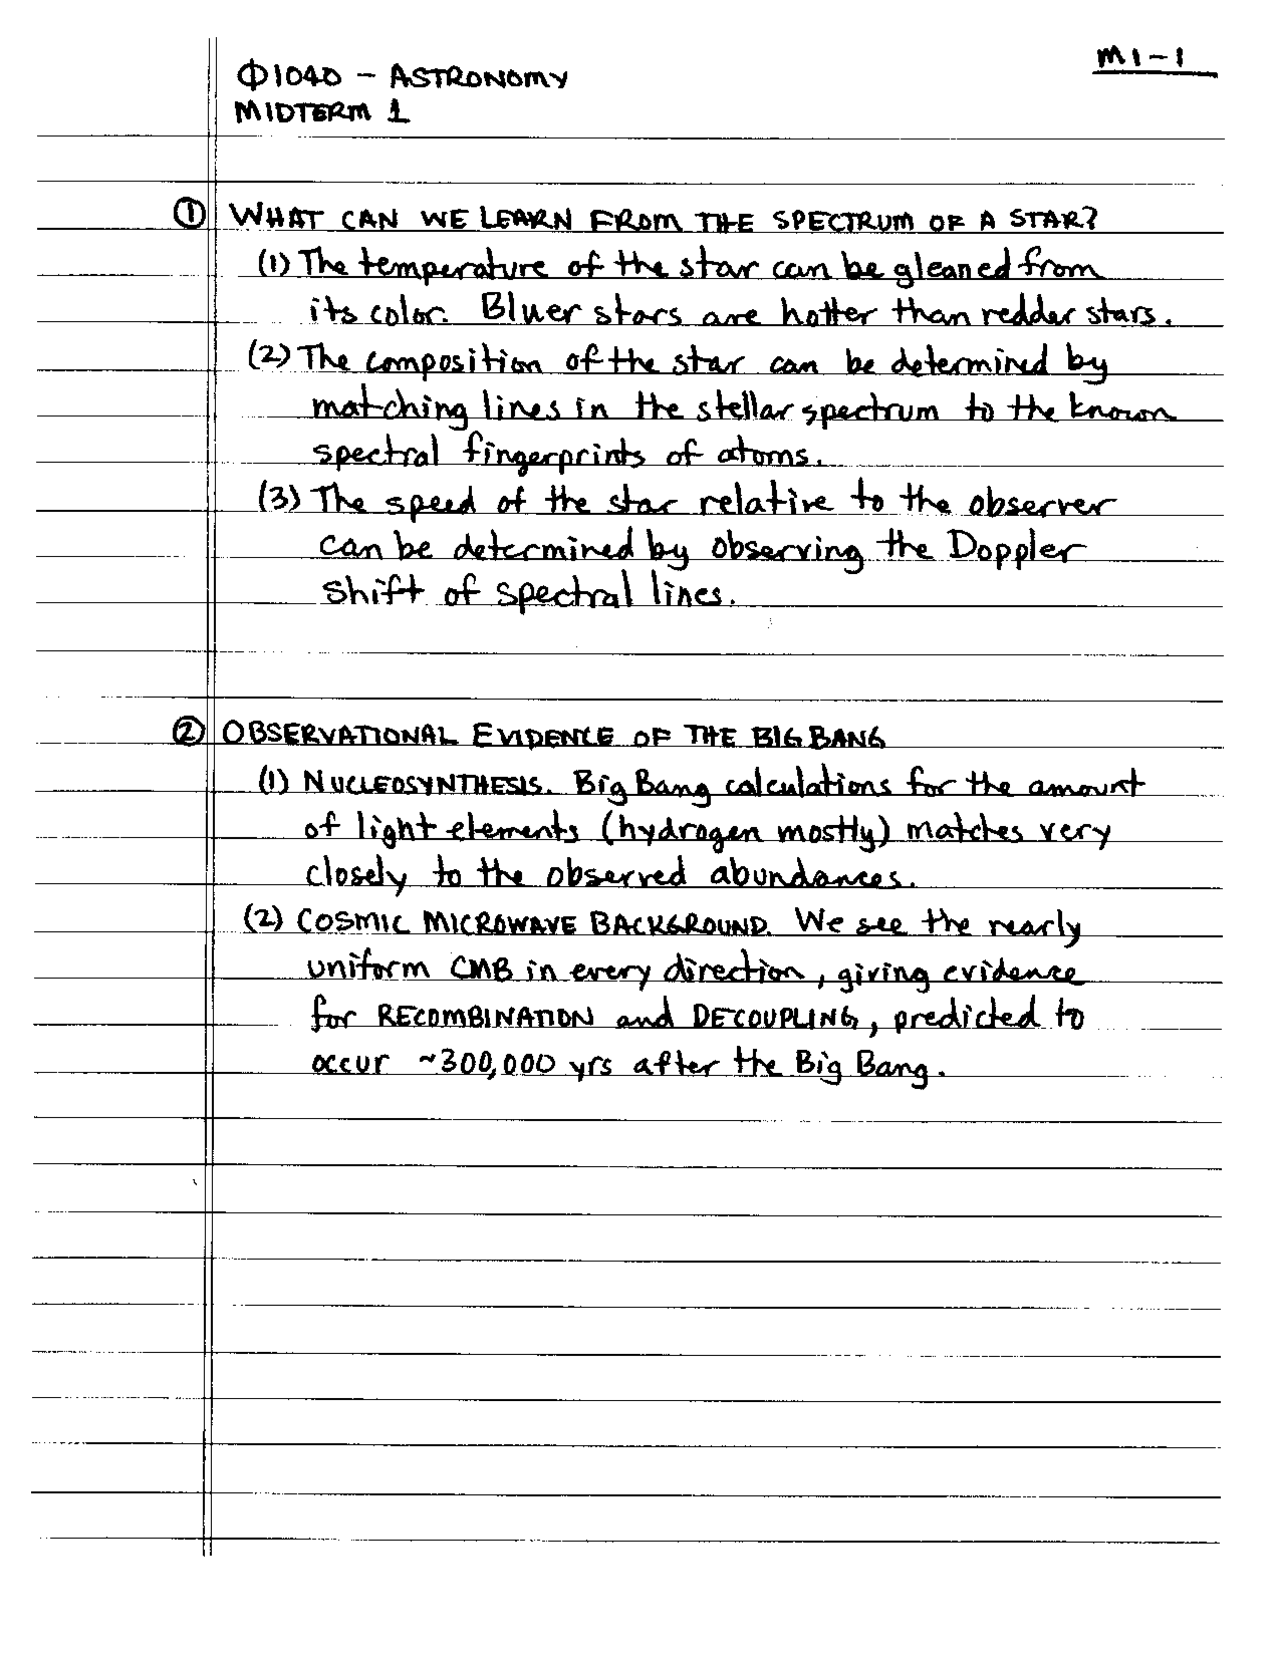 M1-1
Φ1040 - ASTRONOMY
MIDTERM 1
① WHAT CAN WE LEARN FROM THE SPECTRUM OF A STAR?
(1) The temperature of the star can be gleaned from
its color. Bluer stars are hotter than redder stars.
(2) The composition of the star can be determined by
matching lines in the stellar spectrum to the known
spectral fingerprints of atoms.
(3) The speed of the star relative to the observer
can be determined by observing the Doppler
shift of spectral lines.
② OBSERVATIONAL EVIDENCE OF THE BIG BANG
(1) NUCLEOSYNTHESIS. Big Bang calculations for the amount
of light elements (hydrogen mostly) matches very
closely to the observed abundances.
(2) COSMIC MICROWAVE BACKGROUND. We see the nearly
uniform CMB in every direction, giving evidence
for RECOMBINATION and DECOUPLING, predicted to
occur ~300,000 yrs after the Big Bang.